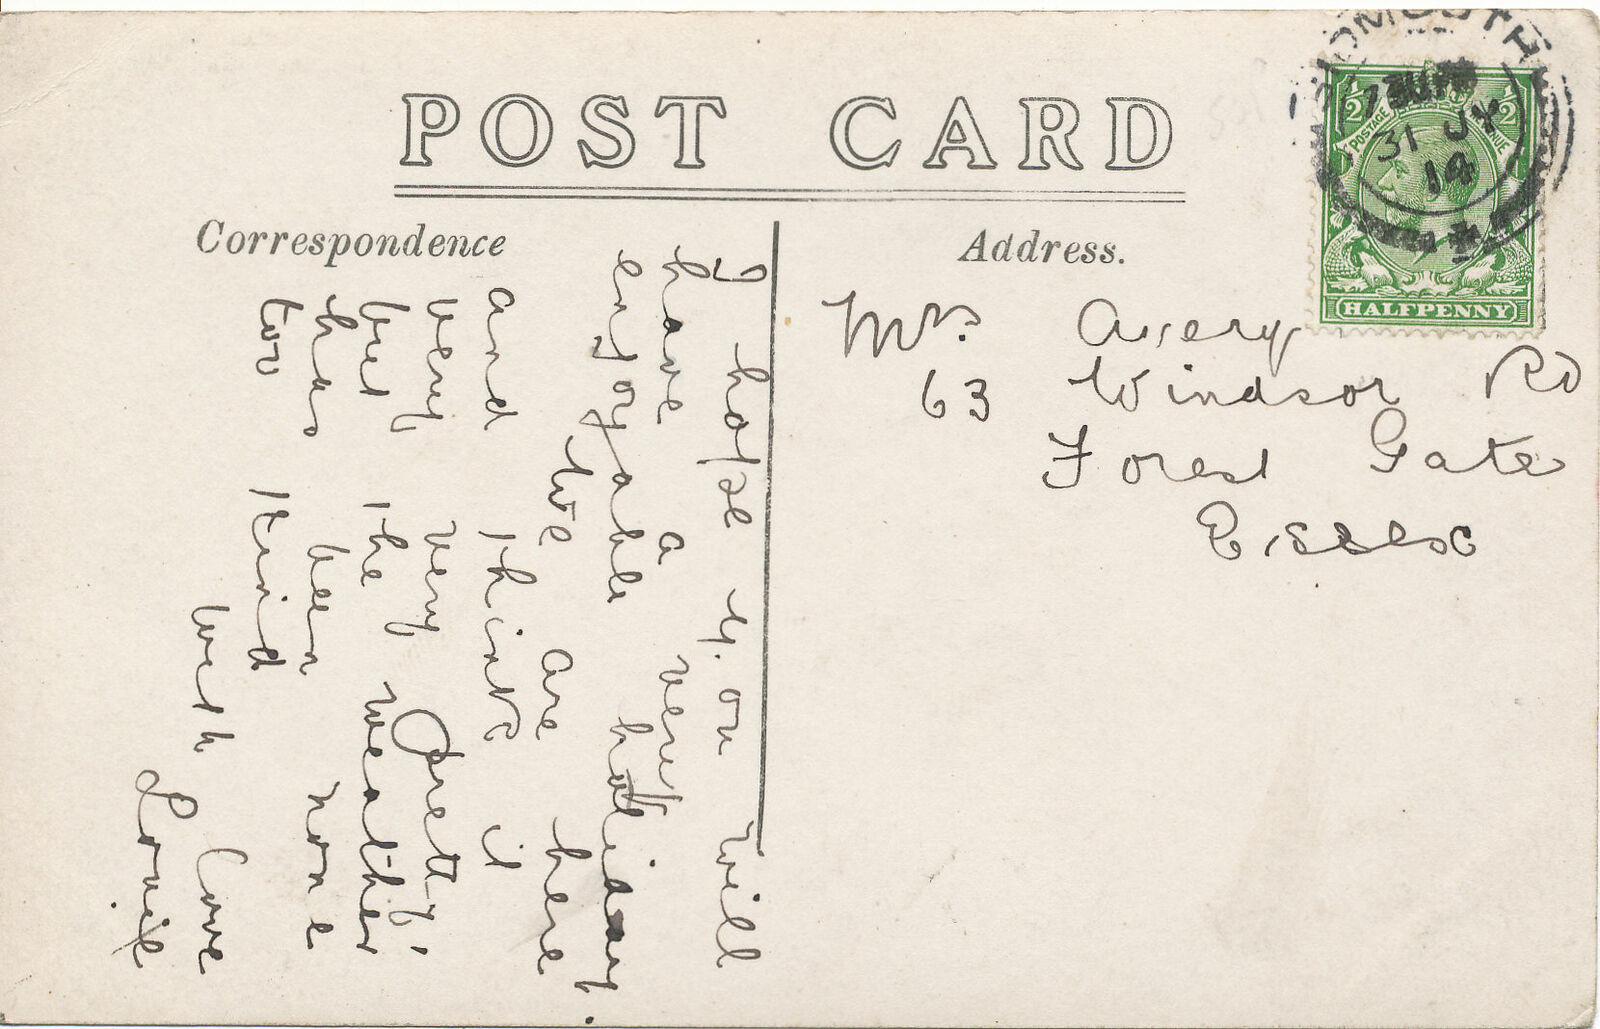 POST CARD
Correspondence
I hope you will
have a very
enjoyable holiday.
We are here
and think it
very very pretty,
but the weather
has been none
too kind
with love
Louie
Address.
Mrs. Avery
63 Windsor Rd
Forest Gate
Essex
31 JY
14
1/2 1/2
POSTAGE REVENUE
HALFPENNY